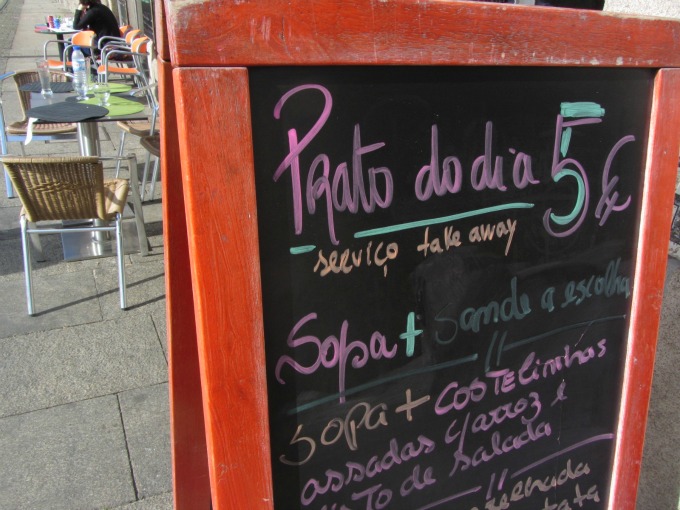 Prato do dia 5€
serviço take away
Sopa + Sande a escolha
Sopa + COSTELinhas
assadas c/arroz e
de salada